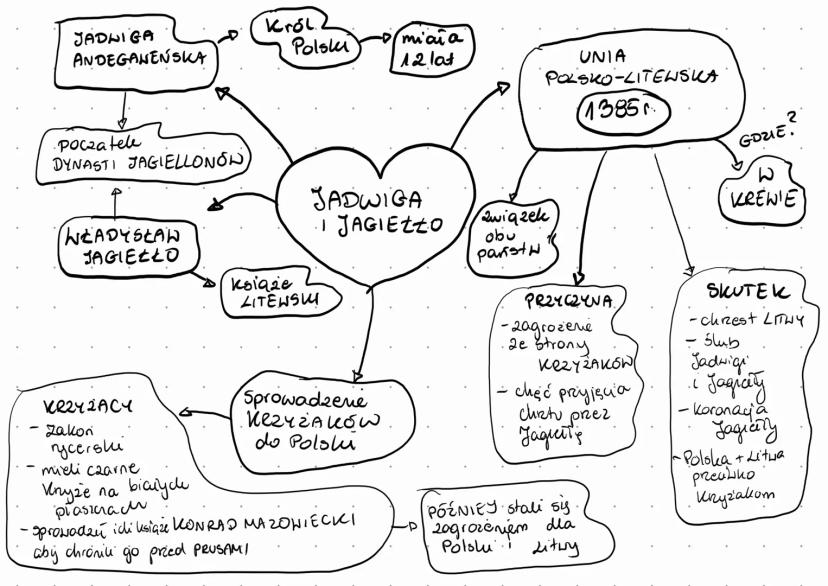 JADWIGA
ANDEGAWEŃSKA
Król
Polski
miała
12 lat
UNIA
POLSKO-LITEWSKA
1385r.
GDZIE?
W
KREWIE
początek
DYNASTI JAGIELLONÓW
JADWIGA
i JAGIEŁŁO
WŁADYSŁAW
JAGIEŁŁO
książe
LITEWSKI
związek
obu
państw
PRZYCZYNA
- zagrożenie
ze strony
KRZYŻAKÓW
- chęć przyjęcia
chrztu przez
Jagiełłę
SKUTEK
- chrzest LITWY
- ślub
Jadwigi
i Jagiełły
- koronacja
Jagiełły
- Polska + Litwa
przeciwko
Krzyżakom
Sprowadzenie
KRZYŻAKÓW
do Polski
KRZYŻACY
- zakon
rycerski
- mieli czarne
krzyże na białych
płaszczach
- sprowadził ich książe KONRAD MAZOWIECKI
aby chronili go przed PRUSAMI
PÓŹNIEJ stali się
zagrożeniem dla
Polski i Litwy